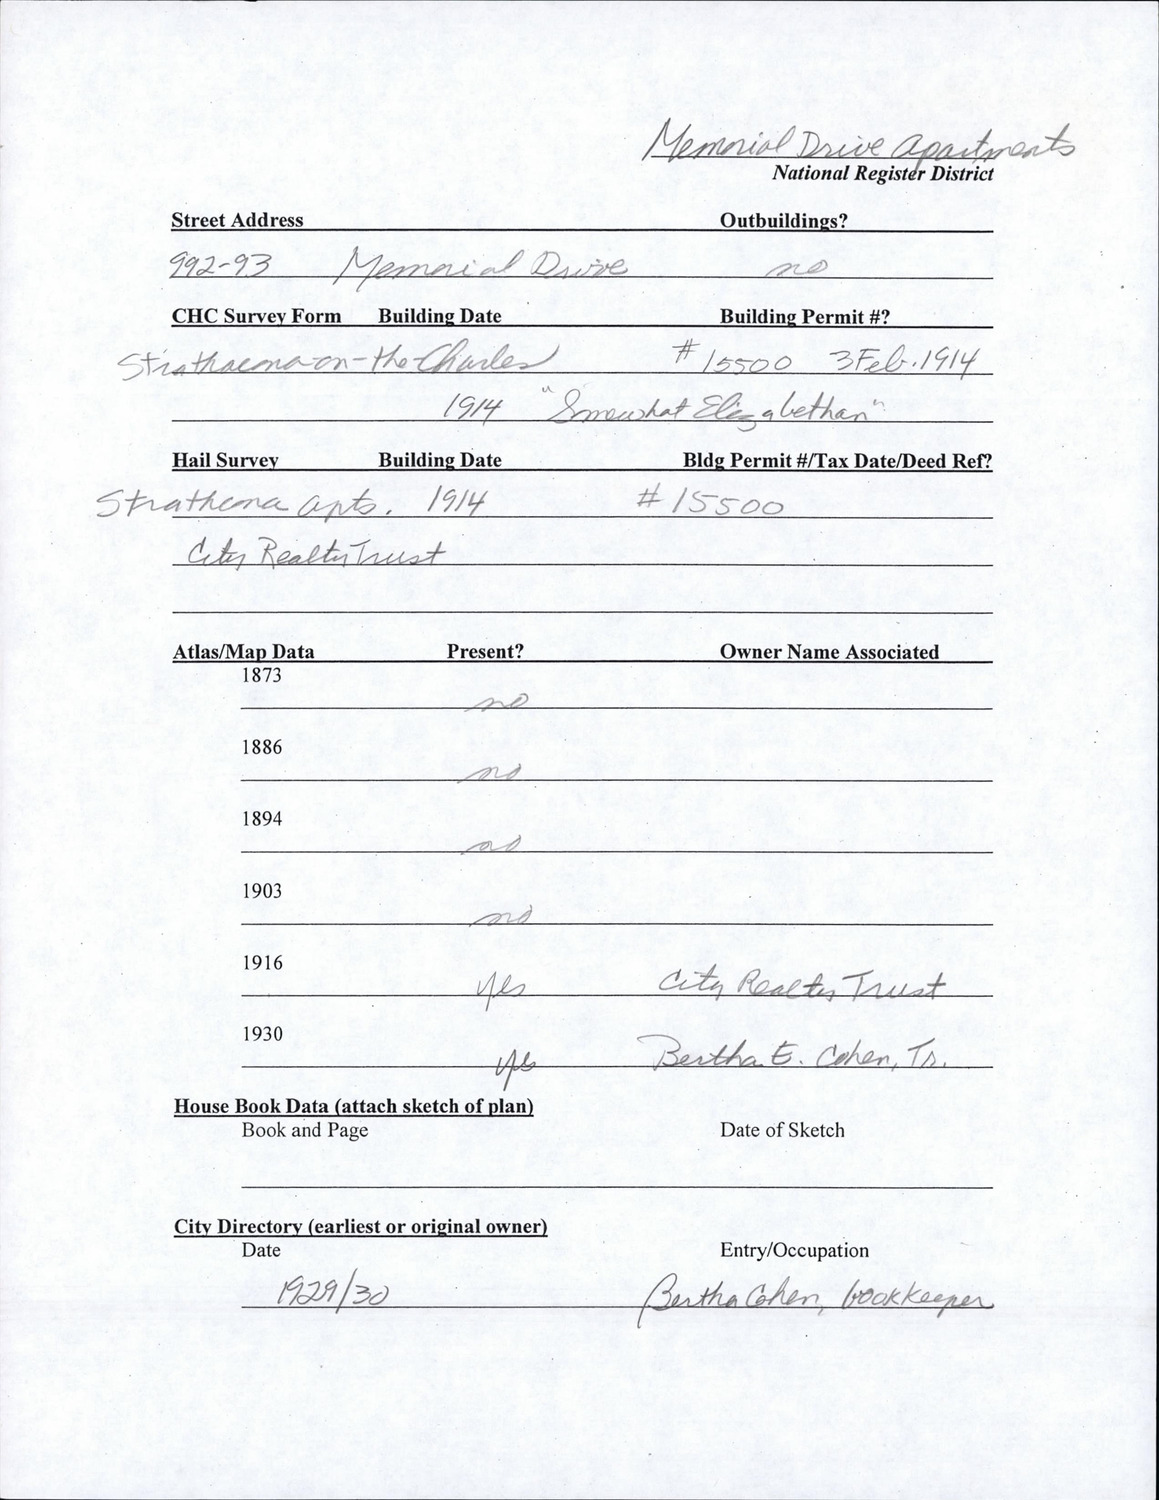 Memorial Drive Apartments
National Register District
Street Address Outbuildings?
992-93 Memorial Drive no
CHC Survey Form Building Date Building Permit #?
Strathcona-on-the-Charles #15500 3 Feb. 1914
1914 "Somewhat Elizabethan"
Hail Survey Building Date Bldg Permit #/Tax Date/Deed Ref?
Strathcona Apts. 1914 #15500
City Realty Trust
Atlas/Map Data Present? Owner Name Associated
1873
no
1886
no
1894
no
1903
no
1916
yes City Realty Trust
1930
yes Bertha E. Cohen, Tr.
House Book Data (attach sketch of plan)
Book and Page Date of Sketch
City Directory (earliest or original owner)
Date Entry/Occupation
1929/30 Bertha Cohen, bookkeeper